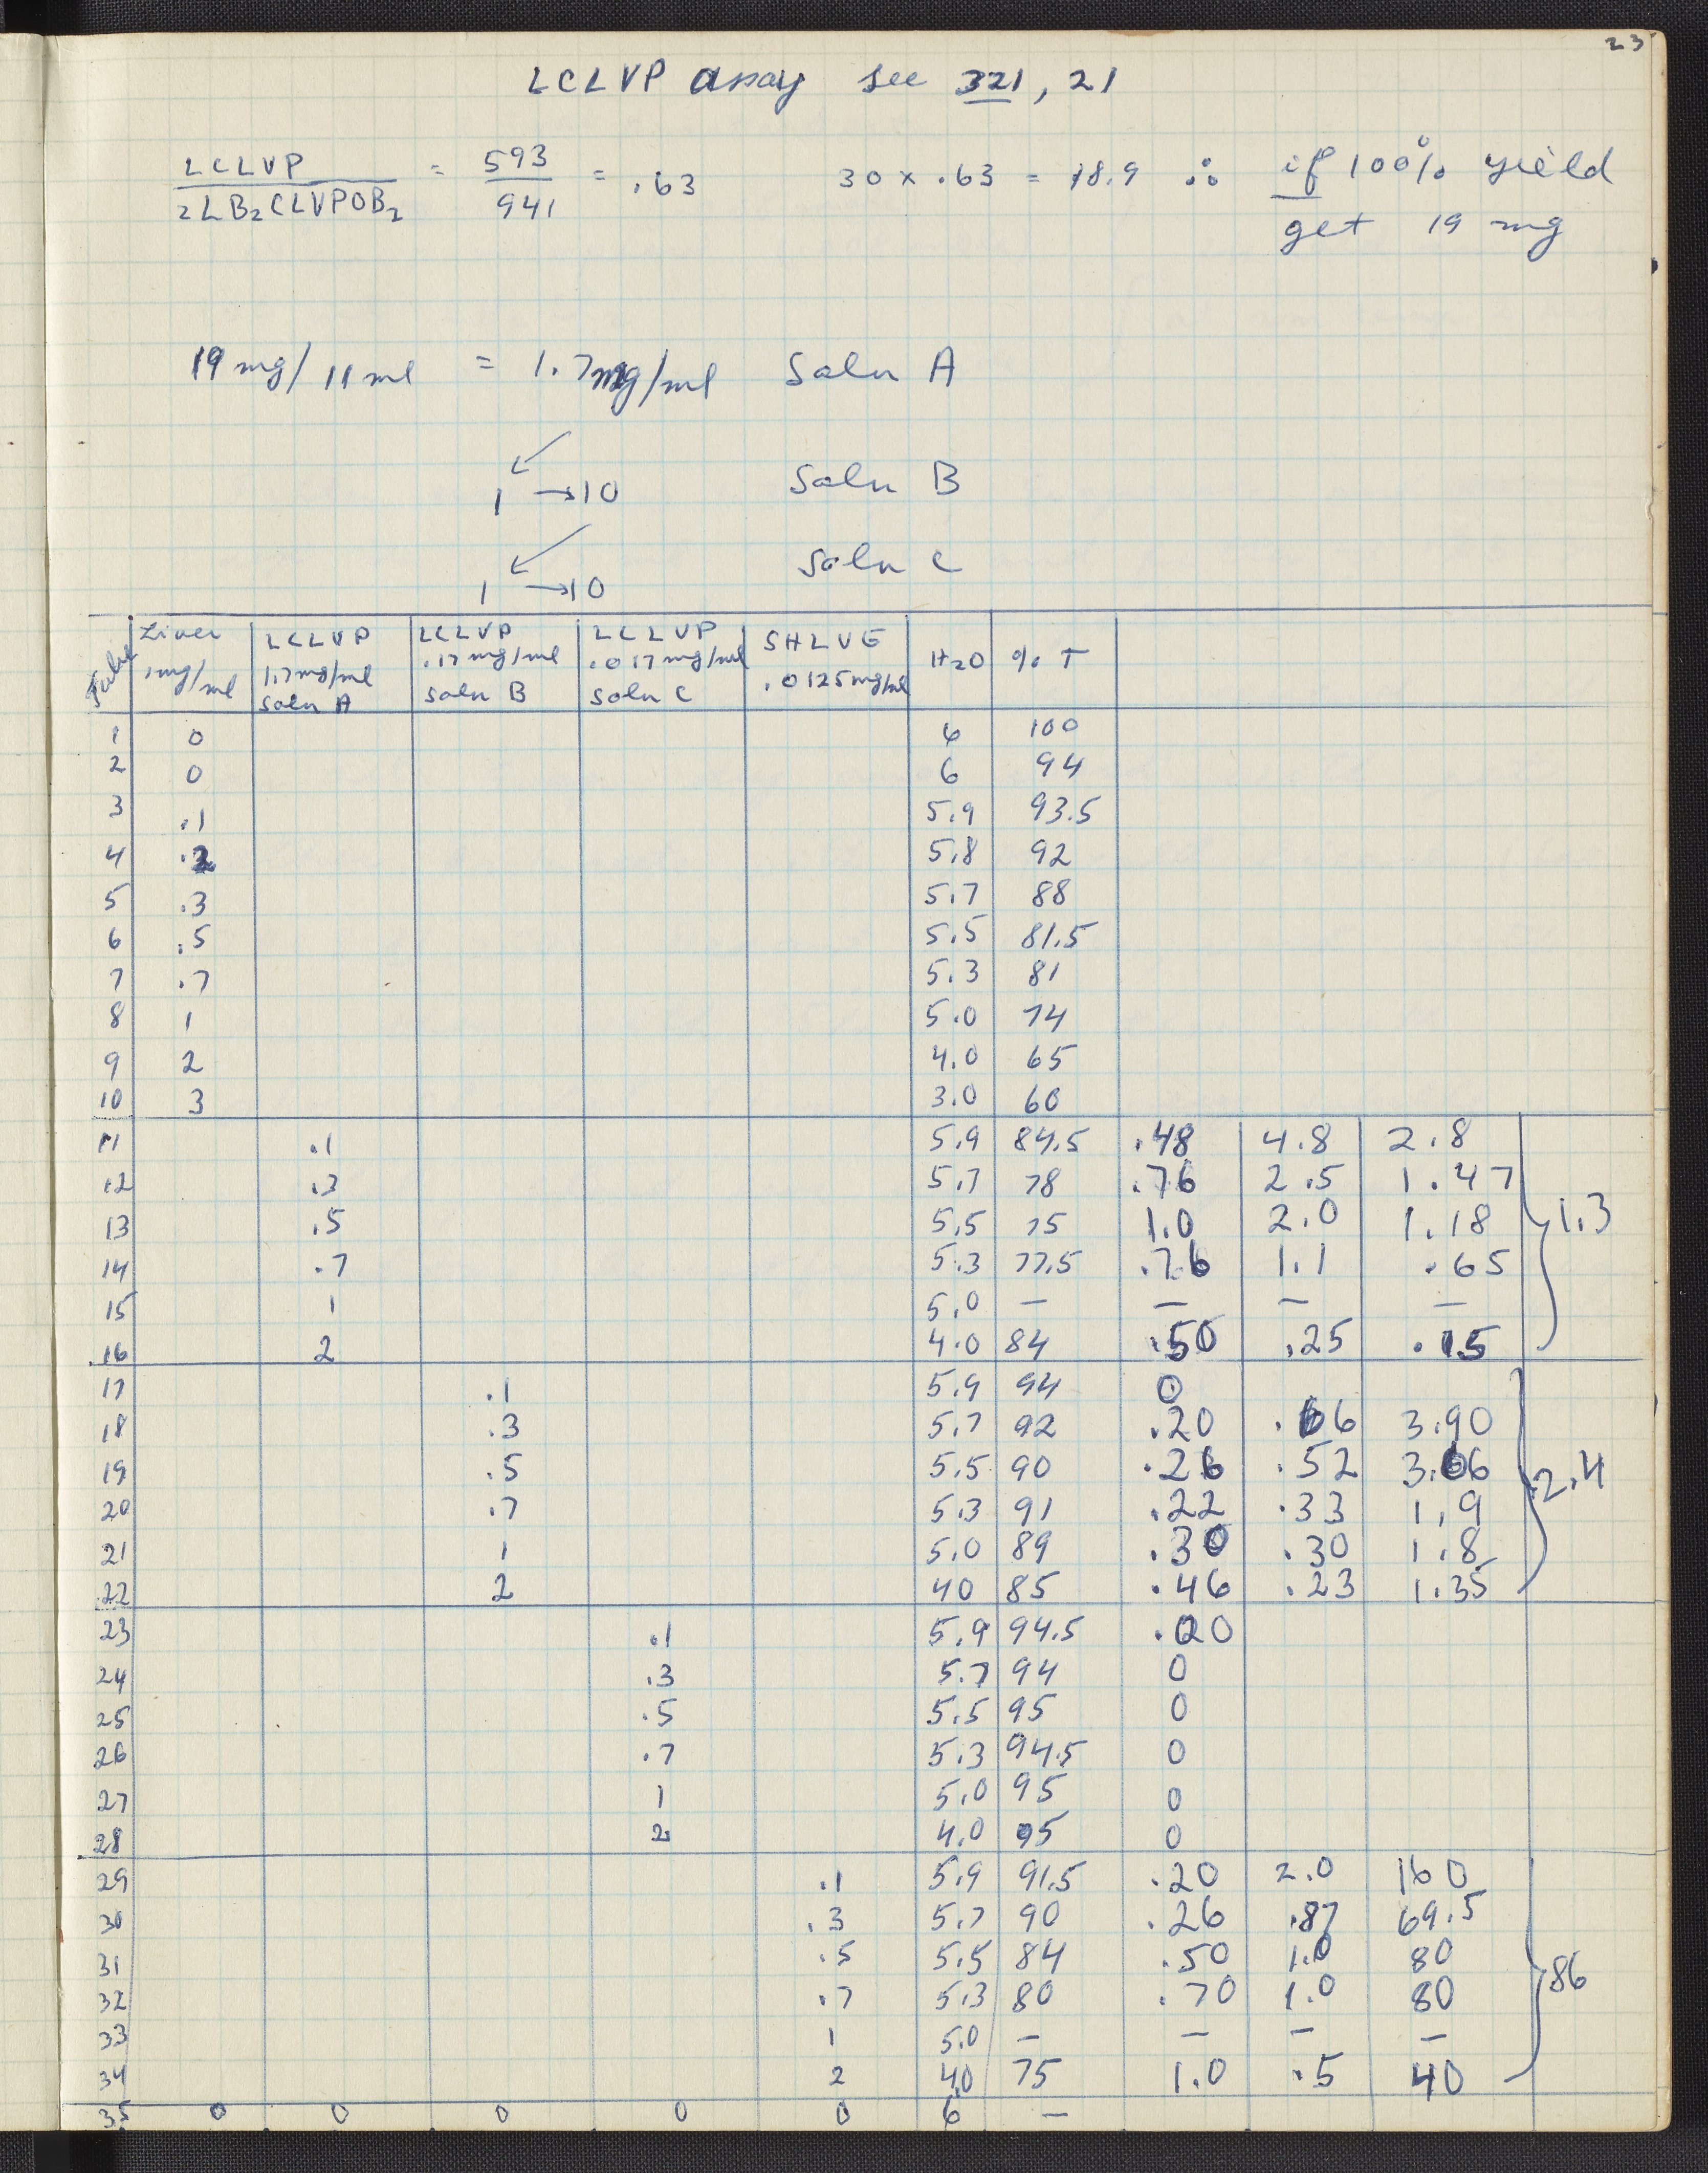 23
LCLVP assay see 321, 21
LCLVP / 2LB₂CLVPOB₂ = 593 / 941 = .63 30 × .63 = 18.9 ∴ if 100% yield
get 19 mg
19 mg/11 ml = 1.7mg/ml Soln A
1 → 10 Soln B
1 → 10 Soln C
Tube | Liver 1mg/ml | LCLVP 1.7mg/ml Soln A | LCLVP .17mg/ml Soln B | LCLVP .017mg/ml Soln C | SHLVE .0125mg/ml | H₂O | % T
1 0 6 100
2 0 6 94
3 .1 5.9 93.5
4 .2 5.8 92
5 .3 5.7 88
6 .5 5.5 81.5
7 .7 5.3 81
8 1 5.0 74
9 2 4.0 65
10 3 3.0 60
11 .1 5.9 84.5 .48 4.8 2.8
12 .3 5.7 78 .76 2.5 1.47
13 .5 5.5 75 1.0 2.0 1.18 1.3
14 .7 5.3 77.5 .76 1.1 .65
15 1 5.0 — — — —
16 2 4.0 84 .50 .25 .15
17 .1 5.9 94 0
18 .3 5.7 92 .20 .66 3.90
19 .5 5.5 90 .26 .52 3.06 2.4
20 .7 5.3 91 .22 .33 1.9
21 1 5.0 89 .30 .30 1.8
22 2 40 85 .46 .23 1.35
23 .1 5.9 94.5 .00
24 .3 5.7 94 0
25 .5 5.5 95 0
26 .7 5.3 94.5 0
27 1 5.0 95 0
28 2 4.0 95 0
29 .1 5.9 91.5 .20 2.0 160
30 .3 5.7 90 .26 .87 69.5
31 .5 5.5 84 .50 1.0 80 86
32 .7 5.3 80 .70 1.0 80
33 1 5.0 — — — —
34 2 4.0 75 1.0 .5 40
35 0 0 0 0 0 6 —